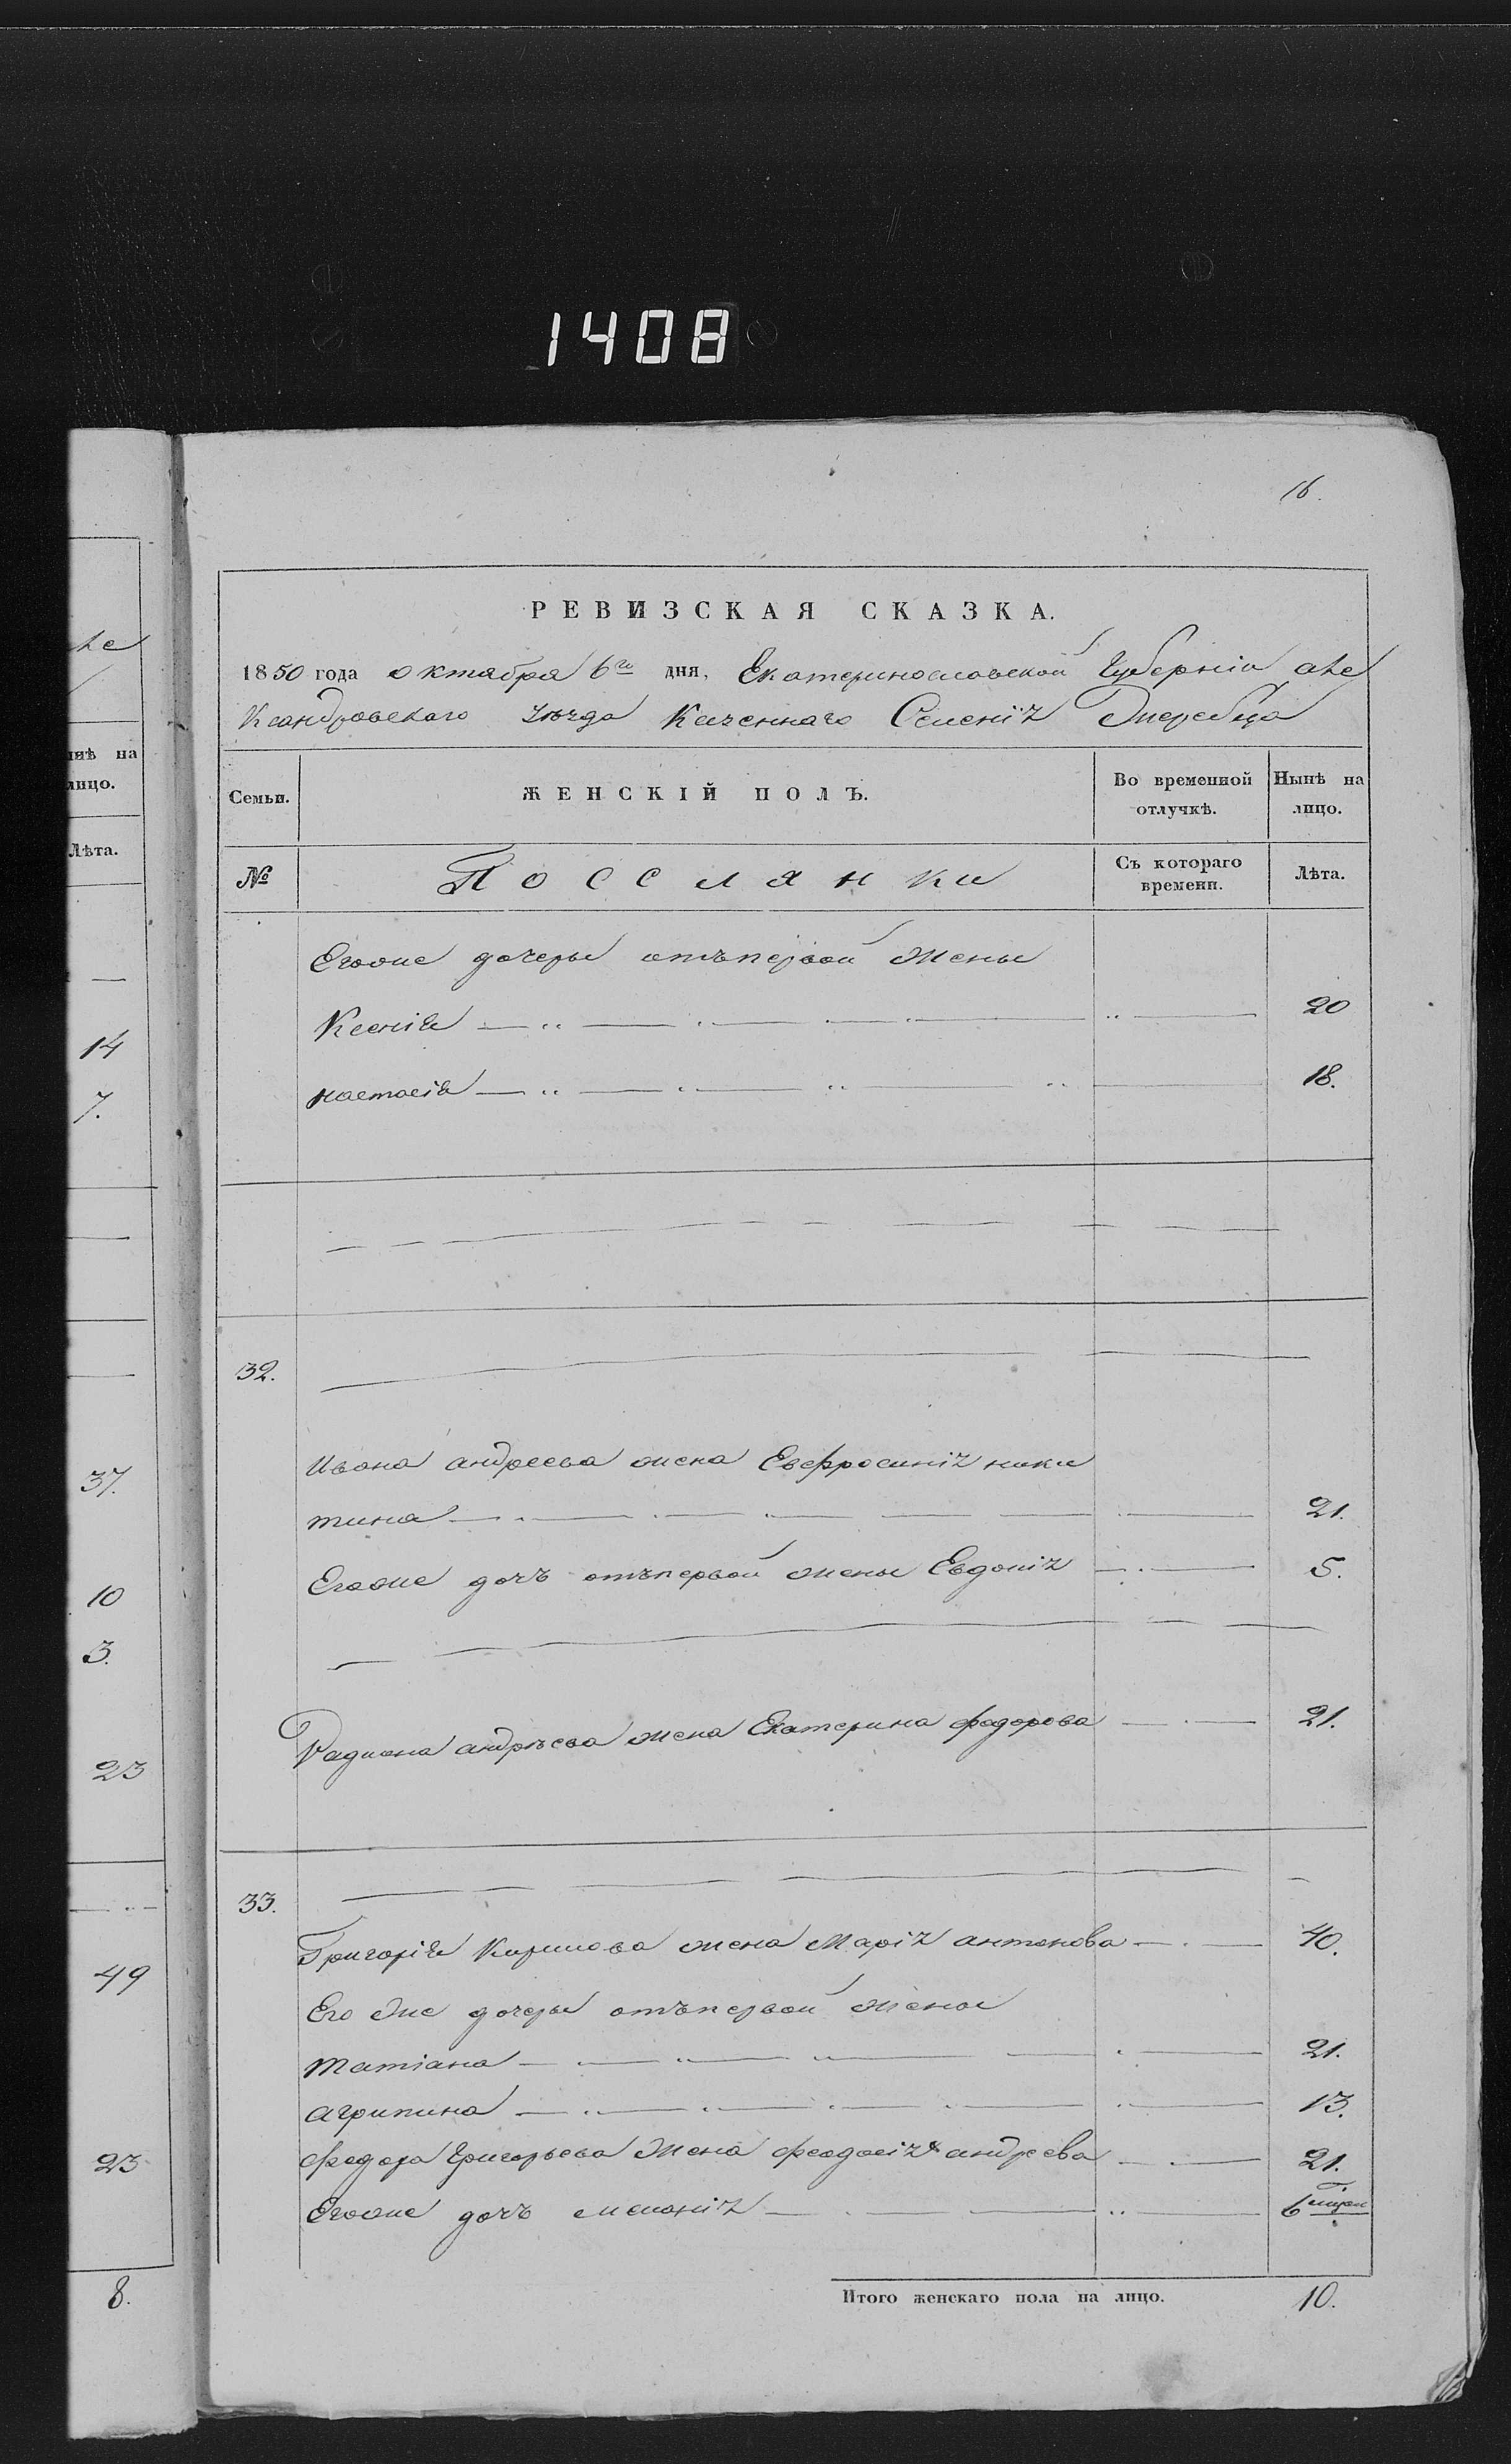 1408
16.
РЕВИЗСКАЯ СКАЗКА.
1850 года октября 6го дня, Екатеринославской Губерніи Але
ксандровскаго уѣзда казеннаго Селенія Жеребца
Семьи. ЖЕНСКІЙ ПОЛЪ. Во временной отлучкѣ. Нынѣ на лицо.
№ Поселянки Съ котораго времени. Лѣта.
Егоже дочеры отъпервой жены
Ксенія 20
настасія 18.
32.
Ивана андреева жена Евфросинія ники
тина 21.
Егоже дочь отъпервой жены Евдокія 5.
Радиона андрѣева жена Екатерина федорова 21.
33.
Григорія Кирилова жена Марія антонова 40.
Его же дочеры отъпервой жены
татіана 21.
агрипина 13.
федора Григорьева жена феодосія андреева 21.
Егоже дочь 6
Итого женскаго пола на лицо. 10.
ле
нѣ на
лицо.
Лѣта.
14
7.
37.
10
3.
23
49
23
8.